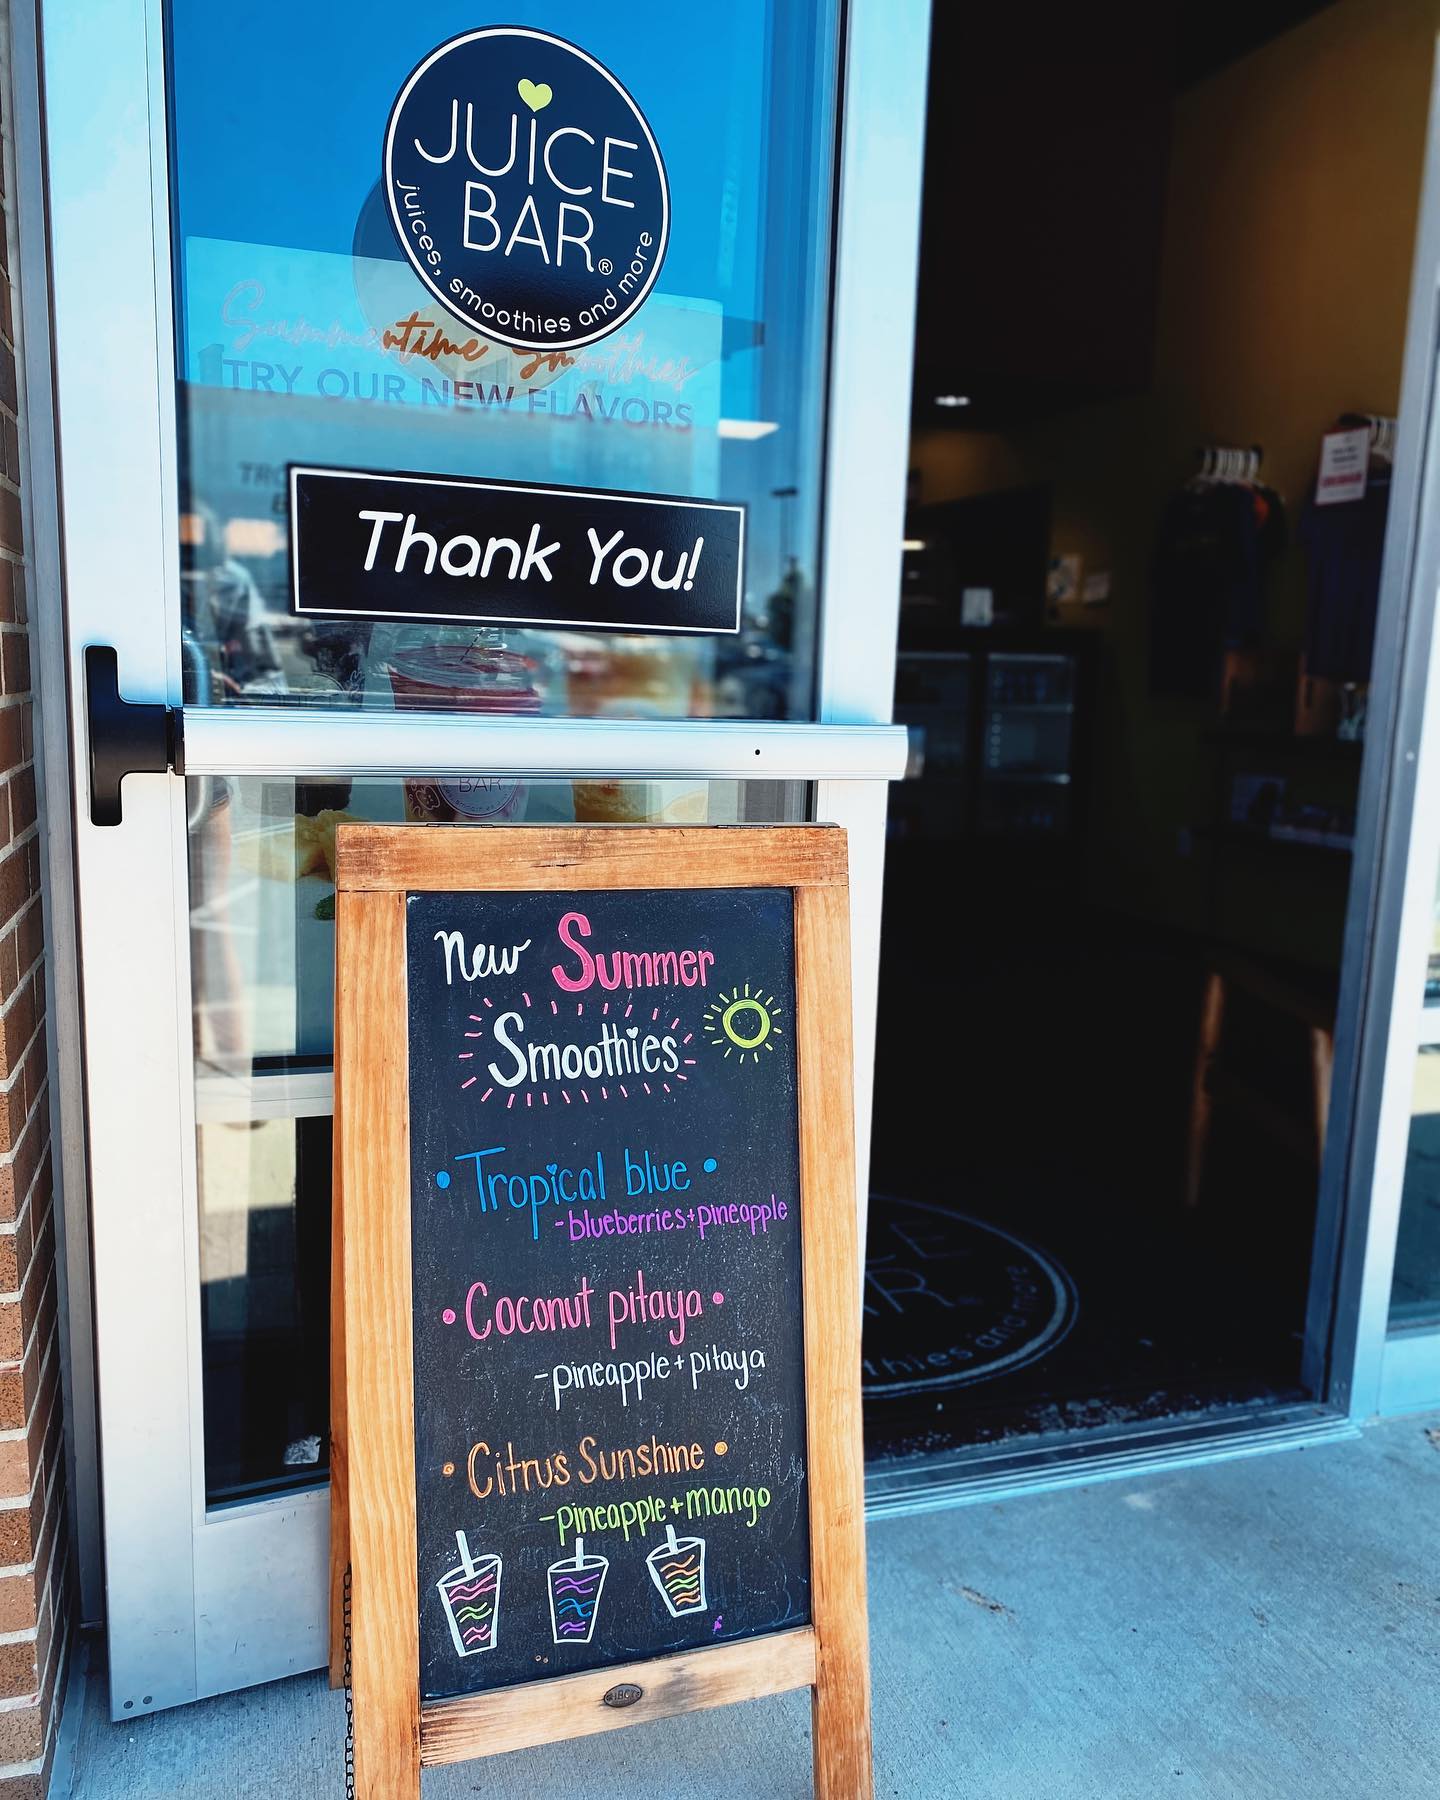 JUiCE
BAR®
juices, smoothies and more
Summertime Smoothies
TRY OUR NEW FLAVORS
Thank You!
BAR
New Summer
Smoothies
• Tropical blue •
-blueberries+pineapple
• Coconut pitaya •
-pineapple+pitaya
• Citrus Sunshine •
-pineapple+mango